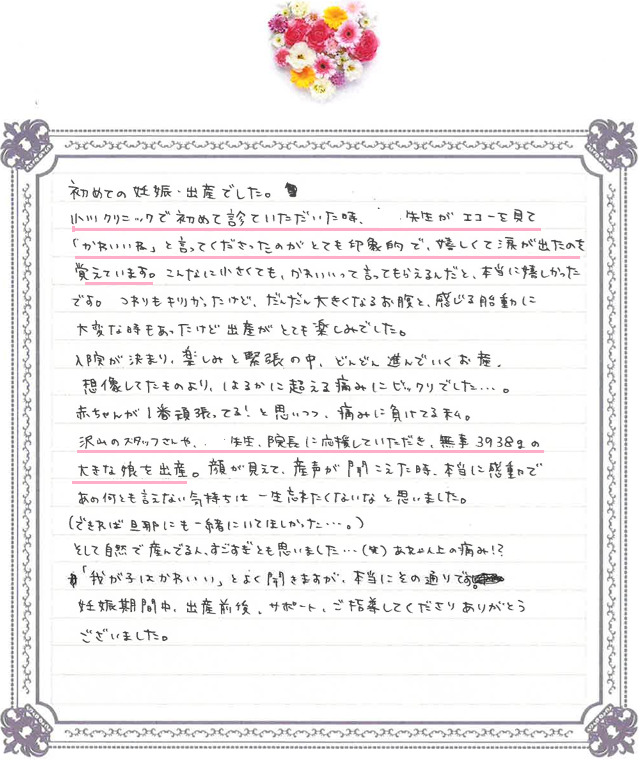 初めての妊娠・出産でした。
小川クリニックで初めて診ていただいた時、 先生が エコーを見て
「かわいいね」と言ってくださったのがとても印象的で、嬉しくて涙が出たのを
覚えています。こんなに小さくても、かわいいって言ってもらえるんだと、本当に嬉しかった
です。 つわりもキツかったけど、だんだん大きくなるお腹と、感じる胎動に
大変な時もあったけど出産がとても楽しみでした。
入院が決まり、楽しみと緊張の中、どんどん進んでいくお産、
想像してたものより、はるかに超える痛みにビックリでした…。
赤ちゃんが1番頑張ってる!と思いつつ、痛みに負けてる私。
沢山のスタッフさんや、 先生、院長に応援していただき、無事3938gの
大きな娘を出産。顔が見えて、産声が聞こえた時、本当に感動で
あの何とも言えない気持ちは一生忘れたくないなと思いました。
(できれば旦那にも一緒にいてほしかった…。)
そして自然で産んでる人、すごすぎとも思いました…(笑) あれ以上の痛み!?
「我が子はかわいい」とよく聞きますが、本当にその通りです。
妊娠期間中、出産前後、サポート、ご指導してくださりありがとう
ございました。